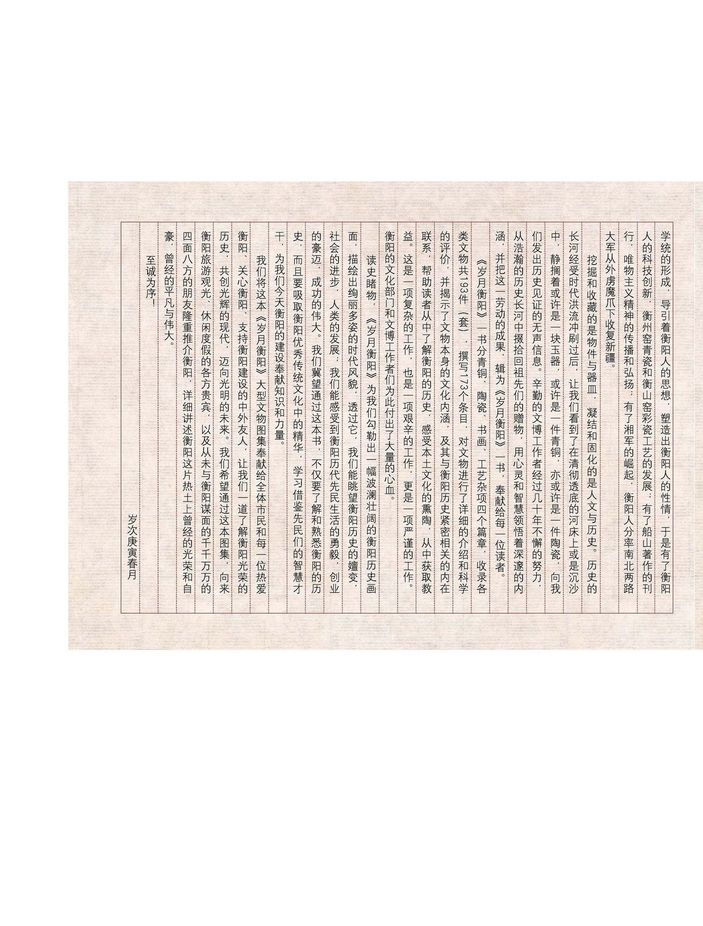 学统的形成，导引着衡阳人的思想，塑造出衡阳人的性情，于是有了衡阳
人的科技创新，衡州窑青瓷和衡山窑彩瓷工艺的发展；有了船山著作的刊
行，唯物主义精神的传播和弘扬；有了湘军的崛起，衡阳人分率南北两路
大军从外虏魔爪下收复新疆。
挖掘和收藏的是物件与器皿，凝结和固化的是人文与历史。历史的
长河经受时代洪流冲刷过后，让我们看到了在清彻透底的河床上或是沉沙
中，静搁着或许是一块玉器，或许是一件青铜，亦或许是一件陶瓷，向我
们发出历史见证的无声信息。辛勤的文博工作者经过几十年不懈的努力，
从浩瀚的历史长河中掇拾回祖先们的赠物，用心灵和智慧领悟着深邃的内
涵，并把这一劳动的成果，辑为《岁月衡阳》一书，奉献给每一位读者。
《岁月衡阳》一书分青铜、陶瓷、书画、工艺杂项四个篇章，收录各
类文物共193件（套），撰写173个条目，对文物进行了详细的介绍和科学
的评价，并揭示了文物本身的文化内涵，及其与衡阳历史紧密相关的内在
联系，帮助读者从中了解衡阳的历史，感受本土文化的熏陶，从中获取教
益。这是一项复杂的工作，也是一项艰辛的工作，更是一项严谨的工作。
衡阳的文化部门和文博工作者们为此付出了大量的心血。
读史睹物，《岁月衡阳》为我们勾勒出一幅波澜壮阔的衡阳历史画
面，描绘出绚丽多姿的时代风貌，透过它，我们能眺望衡阳历史的嬗变，
社会的进步，人类的发展；我们能感受到衡阳历代先民生活的勇毅，创业
的豪迈，成功的伟大。我们冀望通过这本书，不仅要了解和熟悉衡阳的历
史，而且要吸取衡阳优秀传统文化中的精华，学习借鉴先民们的智慧才
干，为我们今天衡阳的建设奉献知识和力量。
我们将这本《岁月衡阳》大型文物图集奉献给全体市民和每一位热爱
衡阳、关心衡阳、支持衡阳建设的中外友人，让我们一道了解衡阳光荣的
历史，共创光辉的现代，迈向光明的未来。我们希望通过这本图集，向来
衡阳旅游观光、休闲度假的各方贵宾，以及从未与衡阳谋面的千千万万的
四面八方的朋友隆重推介衡阳，详细讲述衡阳这片热土上曾经的光荣和自
豪，曾经的平凡与伟大。
至诚为序！
岁次庚寅春月